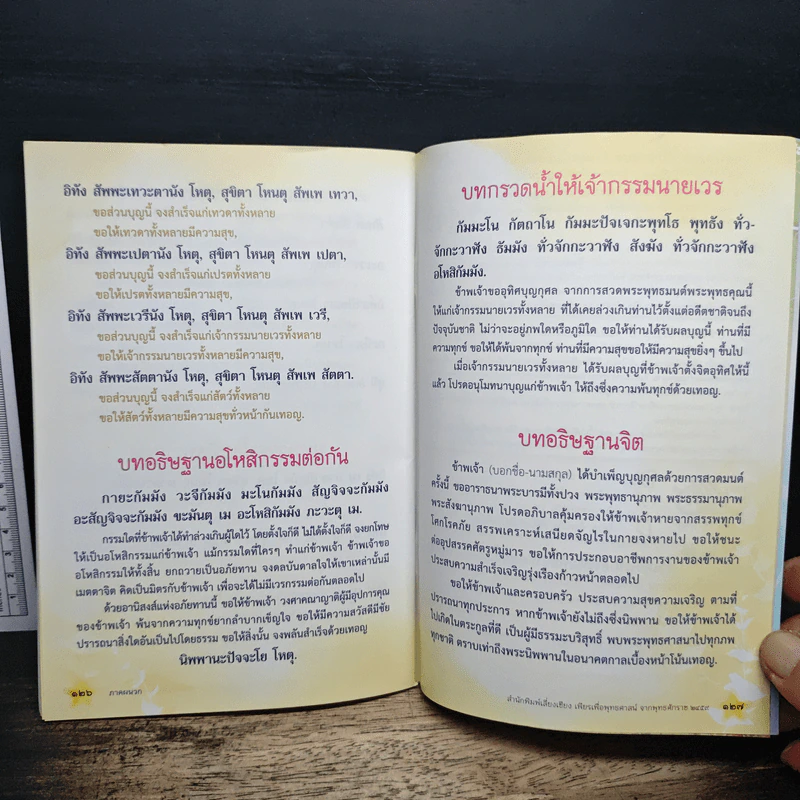 อิทัง สัพพะเทวะตานัง โหตุ, สุขิตา โหนตุ สัพเพ เทวา,
ขอส่วนบุญนี้ จงสำเร็จแก่เทวดาทั้งหลาย
ขอให้เทวดาทั้งหลายมีความสุข,
อิทัง สัพพะเปตานัง โหตุ, สุขิตา โหนตุ สัพเพ เปตา,
ขอส่วนบุญนี้ จงสำเร็จแก่เปรตทั้งหลาย
ขอให้เปรตทั้งหลายมีความสุข,
อิทัง สัพพะเวรีนัง โหตุ, สุขิตา โหนตุ สัพเพ เวรี,
ขอส่วนบุญนี้ จงสำเร็จแก่เจ้ากรรมนายเวรทั้งหลาย
ขอให้เจ้ากรรมนายเวรทั้งหลายมีความสุข,
อิทัง สัพพะสัตตานัง โหตุ, สุขิตา โหนตุ สัพเพ สัตตา.
ขอส่วนบุญนี้ จงสำเร็จแก่สัตว์ทั้งหลาย
ขอให้สัตว์ทั้งหลายมีความสุขทั่วหน้ากันเทอญ.
บทอธิษฐานอโหสิกรรมต่อกัน
กายะกัมมัง วะจีกัมมัง มะโนกัมมัง สัญจิจจะกัมมัง
อะสัญจิจจะกัมมัง ขะมันตุ เม อะโหสิกัมมัง ภะวะตุ เม.
กรรมใดที่ข้าพเจ้าได้ทำล่วงเกินผู้ใดไว้ โดยตั้งใจก็ดี ไม่ได้ตั้งใจก็ดี จงยกโทษ
ให้เป็นอโหสิกรรมแก่ข้าพเจ้า แม้กรรมใดที่ใครๆ ทำแก่ข้าพเจ้า ข้าพเจ้าขอ
อโหสิกรรมให้ทั้งสิ้น ยกถวายเป็นอภัยทาน จงดลบันดาลใจให้เขาเหล่านั้นมี
เมตตาจิต คิดเป็นมิตรกับข้าพเจ้า เพื่อจะได้ไม่มีเวรกรรมต่อกันตลอดไป
ด้วยอานิสงส์แห่งอภัยทานนี้ ขอให้ข้าพเจ้า วงศาคณาญาติผู้มีอุปการคุณ
ของข้าพเจ้า พ้นจากความทุกข์ยากลำบากเข็ญใจ ขอให้มีความสวัสดีมีชัย
ปรารถนาสิ่งใดอันเป็นไปโดยธรรม ขอให้สิ่งนั้น จงพลันสำเร็จด้วยเทอญ
นิพพานะปัจจะโย โหตุ.
๑๒๖ ภาคผนวก
บทกรวดน้ำให้เจ้ากรรมนายเวร
กัมมะโน กัตถาโน กัมมะปัจเจกะพุทโธ พุทธัง ทั่ว-
จักกะวาฬัง ธัมมัง ทั่วจักกะวาฬัง สังฆัง ทั่วจักกะวาฬัง
อโหสิกัมมัง.
ข้าพเจ้าขออุทิศบุญกุศล จากการสวดพระพุทธมนต์พระพุทธคุณนี้
ให้แก่เจ้ากรรมนายเวรทั้งหลาย ที่ได้เคยล่วงเกินท่านไว้ตั้งแต่อดีตชาติจนถึง
ปัจจุบันชาติ ไม่ว่าจะอยู่ภพใดหรือภูมิใด ขอให้ท่านได้รับผลบุญนี้ ท่านที่มี
ความทุกข์ ขอให้ได้พ้นจากทุกข์ ท่านที่มีความสุขขอให้มีความสุขยิ่งๆ ขึ้นไป
เมื่อเจ้ากรรมนายเวรทั้งหลาย ได้รับผลบุญที่ข้าพเจ้าตั้งจิตอุทิศให้นี้
แล้ว โปรดอนุโมทนาบุญแก่ข้าพเจ้า ให้ถึงซึ่งความพ้นทุกข์ด้วยเทอญ.
บทอธิษฐานจิต
ข้าพเจ้า (บอกชื่อ-นามสกุล) ได้บำเพ็ญบุญกุศลด้วยการสวดมนต์
ครั้งนี้ ขออาราธนาพระบารมีทั้งปวง พระพุทธานุภาพ พระธรรมานุภาพ
พระสังฆานุภาพ โปรดอภิบาลคุ้มครองให้ข้าพเจ้าหายจากสรรพทุกข์
โศกโรคภัย สรรพเคราะห์เสนียดจัญไรในกายจงหายไป ขอให้ชนะ
ต่ออุปสรรคศัตรูหมู่มาร ขอให้การประกอบอาชีพการงานของข้าพเจ้า
ประสบความสำเร็จเจริญรุ่งเรืองก้าวหน้าตลอดไป
ขอให้ข้าพเจ้าและครอบครัว ประสบความสุขความเจริญ ตามที่
ปรารถนาทุกประการ หากข้าพเจ้ายังไม่ถึงซึ่งนิพพาน ขอให้ข้าพเจ้าได้
ไปเกิดในตระกูลที่ดี เป็นผู้มีธรรมะบริสุทธิ์ พบพระพุทธศาสนาไปทุกภพ
ทุกชาติ ตราบเท่าถึงพระนิพพานในอนาคตกาลเบื้องหน้าโน้นเทอญ.
สำนักพิมพ์เลี่ยงเชียง เพียรเพื่อพุทธศาสน์ จากพุทธศักราช ๒๔๕๙ ๑๒๗